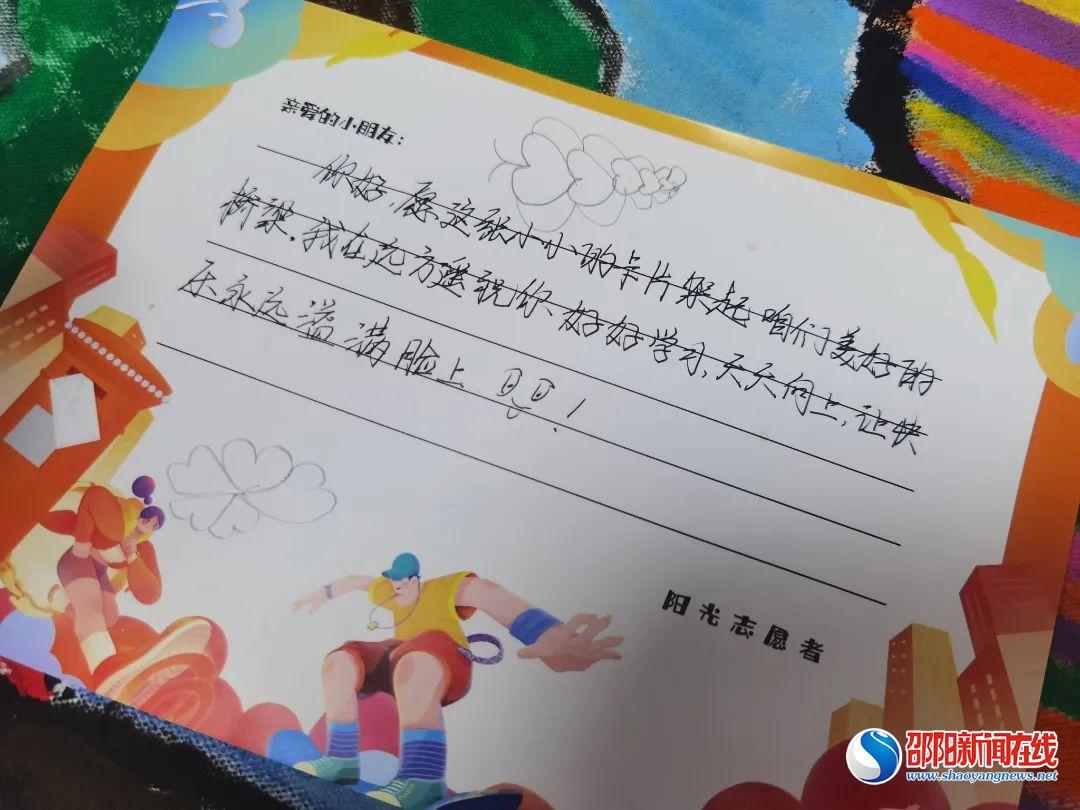 亲爱的小朋友：
你好，愿这张小小的卡片架起咱们美好的
桥梁，我在远方遥祝你好好学习，天天向上，让快
乐永远溢满脸上！
阳光志愿者
邵阳新闻在线
www.shaoyangnews.net